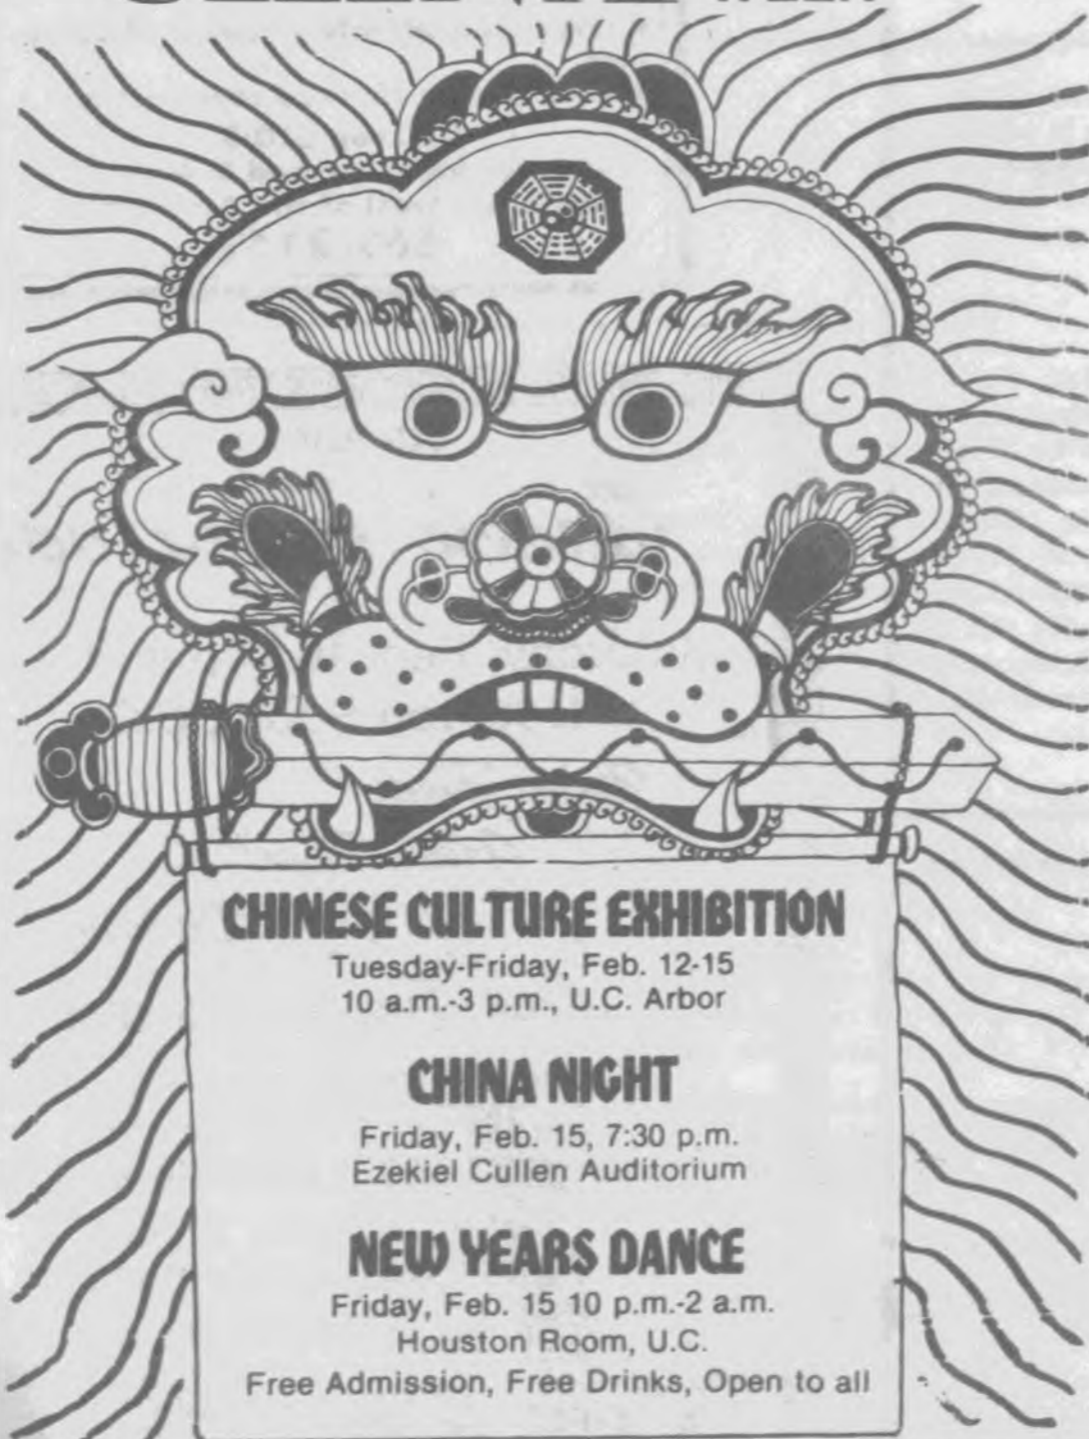 CHINESE CULTURE EXHIBITION
Tuesday-Friday, Feb. 12-15
10 a.m.-3 p.m., U.C. Arbor
CHINA NIGHT
Friday, Feb. 15, 7:30 p.m.
Ezekiel Cullen Auditorium
NEW YEARS DANCE
Friday, Feb. 15 10 p.m.-2 a.m.
Houston Room, U.C.
Free Admission, Free Drinks, Open to all